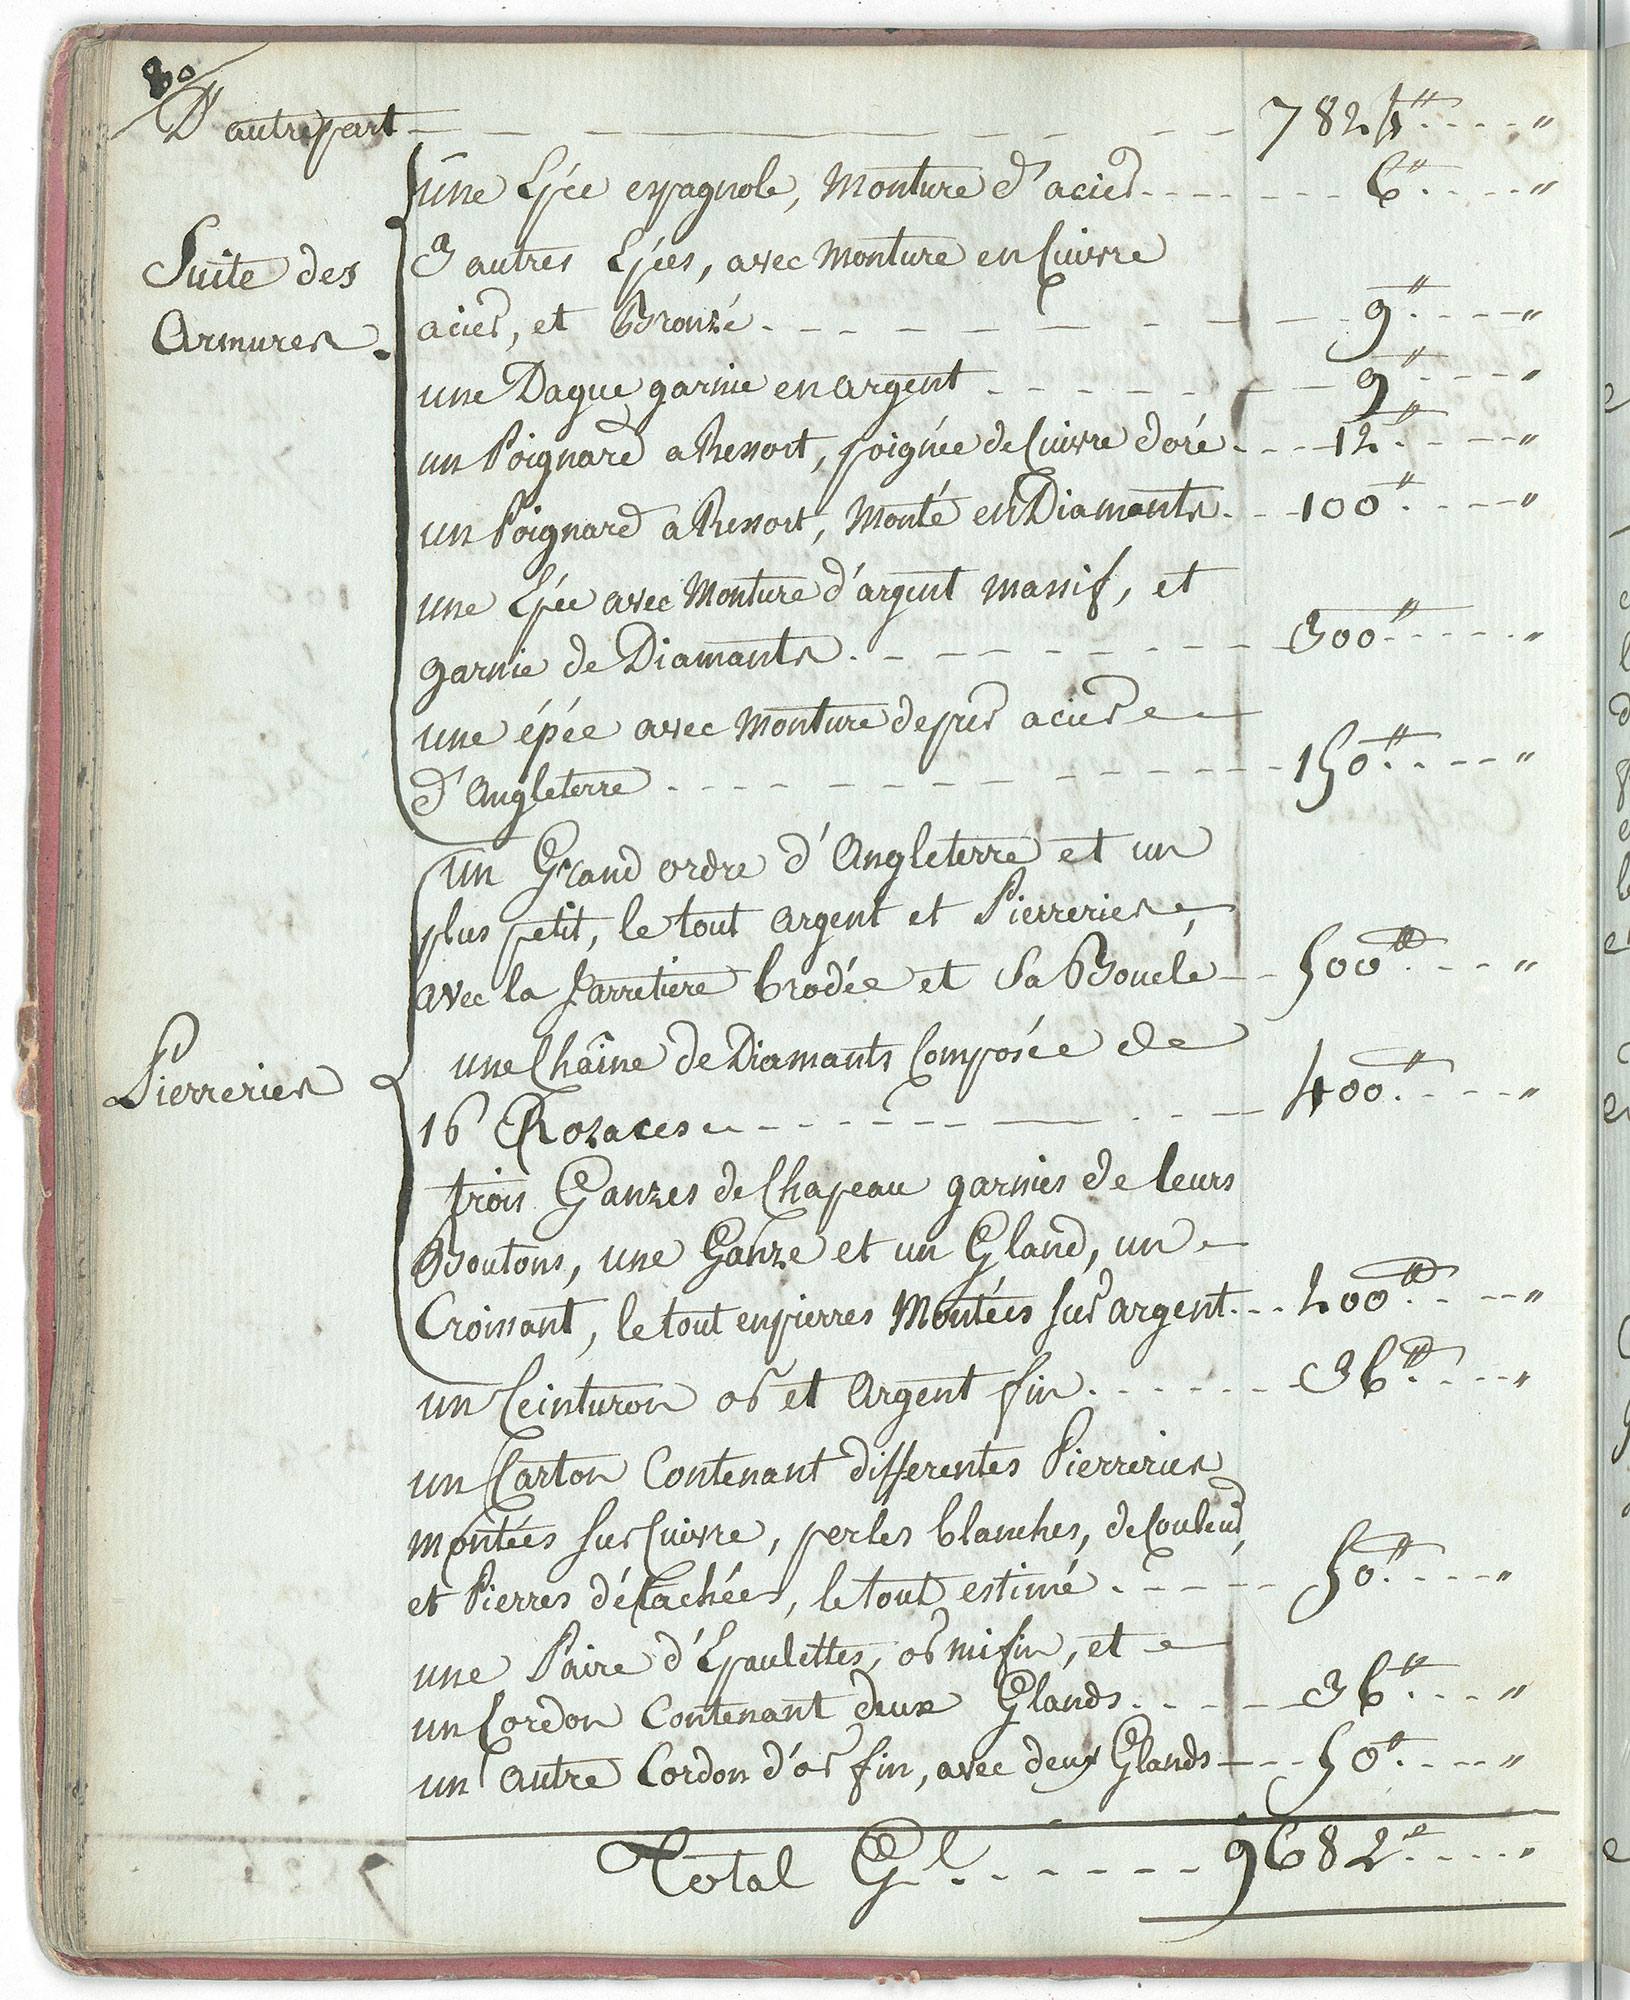 80
D'autrepart 7824# "
une Épée espagnole, Monture d'acier 6# "
Suite des Armures.
3 autres Épées, avec Monture en Cuivre
acier, et Bronzé 9# "
une Dague garnie en argent 9# "
un Poignard a Ressort, poignée de Cuivre doré 12# "
un Poignard a Ressort, Monté en Diamants 100# "
une Épée avec Monture d'argent massif, et
garnie de Diamants 300# "
une épée avec Monture de pur acier
d'Angleterre 150# "
Pierreries
un Grand ordre d'Angleterre et un
plus petit, le tout argent et Pierreries,
avec la Jarretière brodée et Sa Boucle 500# "
une Chaîne de Diamants Composée de
16 Rozaces 400# "
trois Ganzes de Chapeau garnies de leurs
Boutons, une Ganze et un Gland, un
Croissant, le tout en pierres Montées sur argent 200# "
un Ceinturon or et Argent fin 36# "
un Carton Contenant differentes Pierreries
montées sur Cuivre, perles blanches, de Couleur,
et Pierres détachées, le tout estimé 50# "
une Paire d'Épaulettes, or mifin, et
un Cordon Contenant deux Glands 36# "
un autre Cordon d'or fin, avec deux Glands 50# "
Total Gl. 9682# "